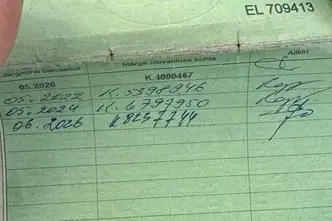 EL 709413
Järgmine ülevaatus Märge ülevaatuse kohta Allkiri
05.2020 K.4000467
05.2022 K.5398946
05.2024 K.6797950
06.2026 K8257744